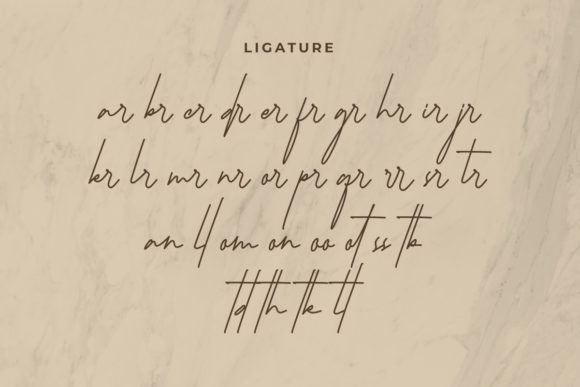 LIGATURE
ar br cr dr er fr gr hr ir jr
kr lr mr nr or pr qr rr sr tr
an ll om on oo ot ss tb
td th tk